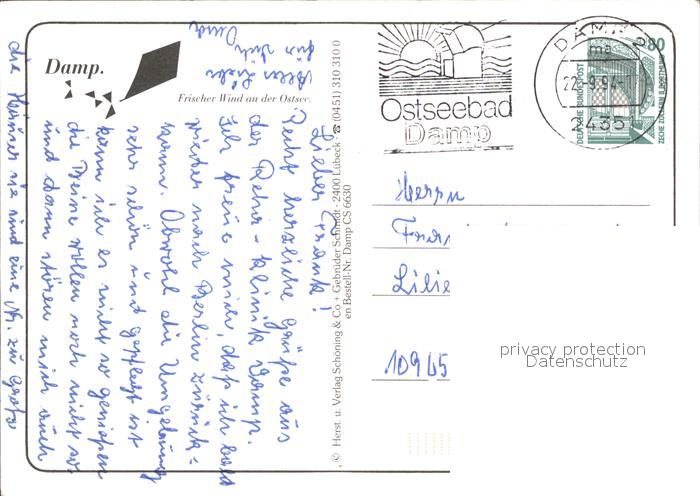 Damp.
Frischer Wind an der Ostsee.
Lieber Frank!
Recht herzliche Grüße aus
der Reha-Klinik Damp.
Ich freue mich, daß ich bald
wieder nach Berlin zurück-
kann. Obwohl die Umgebung
sehr schön und gepflegt ist
kann ich es nicht so genießen
die Beine wollen noch nicht so
und dann stören mich auch
die Männer sie sind eine Nr. zu groß
Alles Liebe
für Dich
© Herst. u. Verlag Schöning & Co + Gebrüder Schmidt · 2400 Lübeck · ☎ (0451) 310 310 0
en Bestell-Nr. Damp CS 6630
Ostseebad
Damp
DAMP
22.-9.94
2435
80
DEUTSCHE BUNDESPOST
ZECHE ZOLLERN II, DORTMUND
Herrn
Lilie
10945
privacy protection
Datenschutz